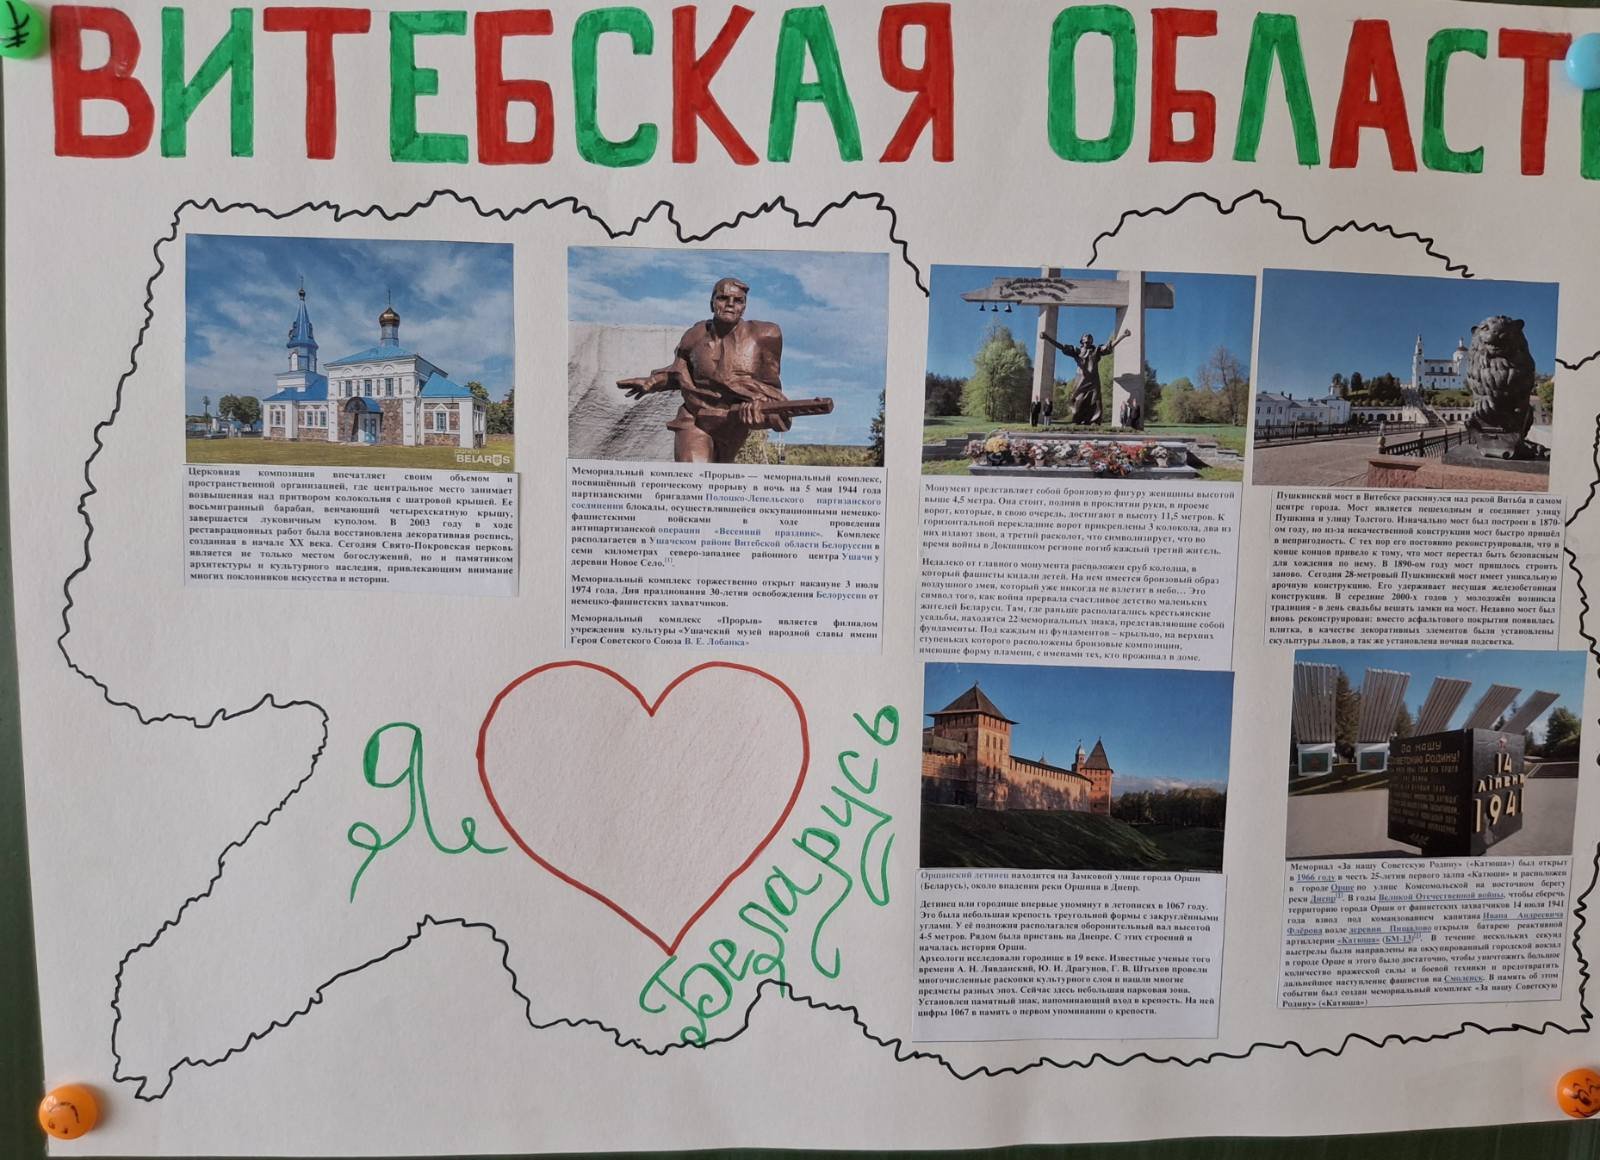 ВИТЕБСКАЯ ОБЛАСТ
BELARUS
Церковная композиция впечатляет своим объемом и
пространственной организацией, где центральное место занимает
возвышенная над притвором колокольня с шатровой крышей. Ее
восьмигранный барабан, венчающий четырехскатную крышу,
завершается луковичным куполом. В 2003 году в ходе
реставрационных работ была восстановлена декоративная роспись,
созданная в начале XX века. Сегодня Свято-Покровская церковь
является не только местом богослужений, но и памятником
архитектуры и культурного наследия, привлекающим внимание
многих поклонников искусства и истории.
Мемориальный комплекс «Прорыв» — мемориальный комплекс,
посвящённый героическому прорыву в ночь на 5 мая 1944 года
партизанскими бригадами Полоцко-Лепельского партизанского
соединения блокады, осуществлявшейся оккупационными немецко-
фашистскими войсками в ходе проведения
антипартизанской операции «Весенний праздник». Комплекс
располагается в Ушачском районе Витебской области Белоруссии в
семи километрах северо-западнее районного центра Ушачи у
деревни Новое Село.[1].
Мемориальный комплекс торжественно открыт накануне 3 июля
1974 года, Дня празднования 30-летия освобождения Белоруссии от
немецко-фашистских захватчиков.
Мемориальный комплекс «Прорыв» является филиалом
учреждения культуры «Ушачский музей народной славы имени
Героя Советского Союза В. Е. Лобанка»
Монумент представляет собой бронзовую фигуру женщины высотой
выше 4,5 метра. Она стоит, подняв в проклятии руки, в проеме
ворот, которые, в свою очередь, достигают в высоту 11,5 метров. К
горизонтальной перекладине ворот прикреплены 3 колокола, два из
них издают звон, а третий расколот, что символизирует, что во
время войны в Докшицком регионе погиб каждый третий житель.
Недалеко от главного монумента расположен сруб колодца, в
который фашисты кидали детей. На нем имеется бронзовый образ
воздушного змея, который уже никогда не взлетит в небо… Это
символ того, как война прервала счастливое детство маленьких
жителей Беларуси. Там, где раньше располагались крестьянские
усадьбы, находятся 22 мемориальных знака, представляющие собой
фундаменты. Под каждым из фундаментов – крыльцо, на верхних
ступеньках которого расположены бронзовые композиции,
имеющие форму пламени, с именами тех, кто проживал в доме.
Пушкинский мост в Витебске раскинулся над рекой Витьба в самом
центре города. Мост является пешеходным и соединяет улицу
Пушкина и улицу Толстого. Изначально мост был построен в 1870-
ом году, но из-за некачественной конструкции мост быстро пришёл
в непригодность. С тех пор его постоянно реконструировали, что в
конце концов привело к тому, что мост перестал быть безопасным
для хождения по нему. В 1890-ом году мост пришлось строить
заново. Сегодня 28-метровый Пушкинский мост имеет уникальную
арочную конструкцию. Его удерживает несущая железобетонная
конструкция. В середине 2000-х годов у молодожён возникла
традиция - в день свадьбы вешать замки на мост. Недавно мост был
вновь реконструирован: вместо асфальтового покрытия появилась
плитка, в качестве декоративных элементов были установлены
скульптуры львов, а так же установлена ночная подсветка.
Я
Беларусь
Оршанский детинец находится на Замковой улице города Орши
(Беларусь), около впадения реки Оршица в Днепр.
Детинец или городище впервые упомянут в летописях в 1067 году.
Это была небольшая крепость треугольной формы с закруглёнными
углами. У её подножия располагался оборонительный вал высотой
4-5 метров. Рядом была пристань на Днепре. С этих строений и
началась история Орши.
Археологи исследовали городище в 19 веке. Известные ученые того
времени А. Н. Лявданский, Ю. И. Драгунов, Г. В. Штыхов провели
многочисленные раскопки культурного слоя и нашли многие
предметы разных эпох. Сейчас здесь небольшая парковая зона.
Установлен памятный знак, напоминающий вход в крепость. На ней
цифры 1067 в память о первом упоминании о крепости.
За нашу
Советскую Родину!
14
ЛІПЕНЯ
1941
Мемориал «За нашу Советскую Родину» («Катюша») был открыт
в 1966 году в честь 25-летия первого залпа «Катюши» и расположен
в городе Орше по улице Комсомольской на восточном берегу
реки Днепр[1]. В годы Великой Отечественной войны, чтобы сберечь
территорию города Орши от фашистских захватчиков 14 июля 1941
года взвод под командованием капитана Ивана Андреевича
Флёрова возле деревни Пищалово открыли батарею реактивной
артиллерии «Катюша» (БМ-13)[2]. В течение нескольких секунд
выстрелы были направлены на оккупированный городской вокзал
в городе Орше и этого было достаточно, чтобы уничтожить большое
количество вражеской силы и боевой техники и предотвратить
дальнейшее наступление фашистов на Смоленск. В память об этом
событии был создан мемориальный комплекс «За нашу Советскую
Родину» («Катюша»)